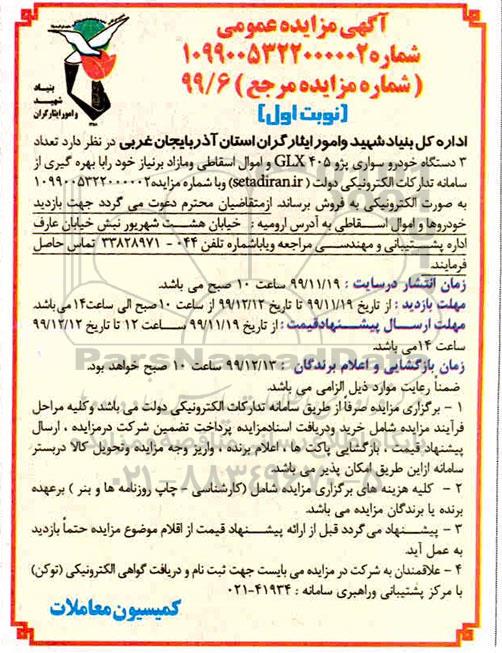 آگهی مزایده عمومی
شماره ۱۰۹۹۰۰۵۳۲۲۰۰۰۰۰۲
(شماره مزایده مرجع) ۹۹/۶
(نوبت اول)
بنیاد
شهید
و امور ایثارگران
اداره کل بنیاد شهید وامور ایثارگران استان آذربایجان غربی در نظر دارد تعداد
۳ دستگاه خودرو سواری پژو ۴۰۵ GLX و اموال اسقاطی ومازاد برنیاز خود رابا بهره گیری از
سامانه تدارکات الکترونیکی دولت (setadiran.ir) وبا شماره مزایده۱۰۹۹۰۰۵۳۲۲۰۰۰۰۰۲
به صورت الکترونیکی به فروش برساند. ازمتقاضیان محترم دعوت می گردد جهت بازدید
خودروها و اموال اسقاطی به آدرس ارومیه : خیابان هشت شهریور نبش خیابان عارف
اداره پشتیبانی و مهندسی مراجعه ویاباشماره تلفن ۰۴۴ - ۳۳۸۲۸۹۷۱ تماس حاصل
فرمایند.
زمان انتشار درسایت : ۹۹/۱۱/۱۹ ساعت ۱۰ صبح می باشد.
مهلت بازدید : از تاریخ ۹۹/۱۱/۱۹ تا تاریخ ۹۹/۱۲/۱۲ از ساعت ۱۰صبح الی ساعت۱۴می‌باشد.
مهلت ارسال پیشنهادقیمت : از تاریخ ۹۹/۱۱/۱۹ ساعت ۱۲ تا تاریخ ۹۹/۱۲/۱۲
ساعت ۱۴می باشد.
زمان بازگشایی و اعلام برندگان : ۹۹/۱۲/۱۳ ساعت ۱۰ صبح خواهد بود.
ضمناً رعایت موارد ذیل الزامی می باشد.
۱ - برگزاری مزایده صرفاً از طریق سامانه تدارکات الکترونیکی دولت می باشد وکلیه مراحل
فرآیند مزایده شامل خرید ودریافت اسنادمزایده پرداخت تضمین شرکت درمزایده ، ارسال
پیشنهاد قیمت ، بازگشایی پاکت ها ، اعلام برنده ، واریز وجه مزایده وتحویل کالا دربستر
سامانه ازاین طریق امکان پذیر می باشد.
۲ - کلیه هزینه های برگزاری مزایده شامل (کارشناسی - چاپ روزنامه ها و بنر ) برعهده
برنده یا برندگان مزایده می باشد.
۳ - پیشنهاد می گردد قبل از ارائه پیشنهاد قیمت از اقلام موضوع مزایده حتماً بازدید
به عمل آید.
۴ - علاقمندان به شرکت در مزایده می بایست جهت ثبت نام و دریافت گواهی الکترونیکی (توکن)
با مرکز پشتیبانی وراهبری سامانه : ۴۱۹۳۴-۰۲۱
کمیسیون معاملات
ParsNamadData
پایگاه اطلاع رسانی مناقصه و مزایده
۰۲۱-۸۸۳۴۹۶۷۰-۵